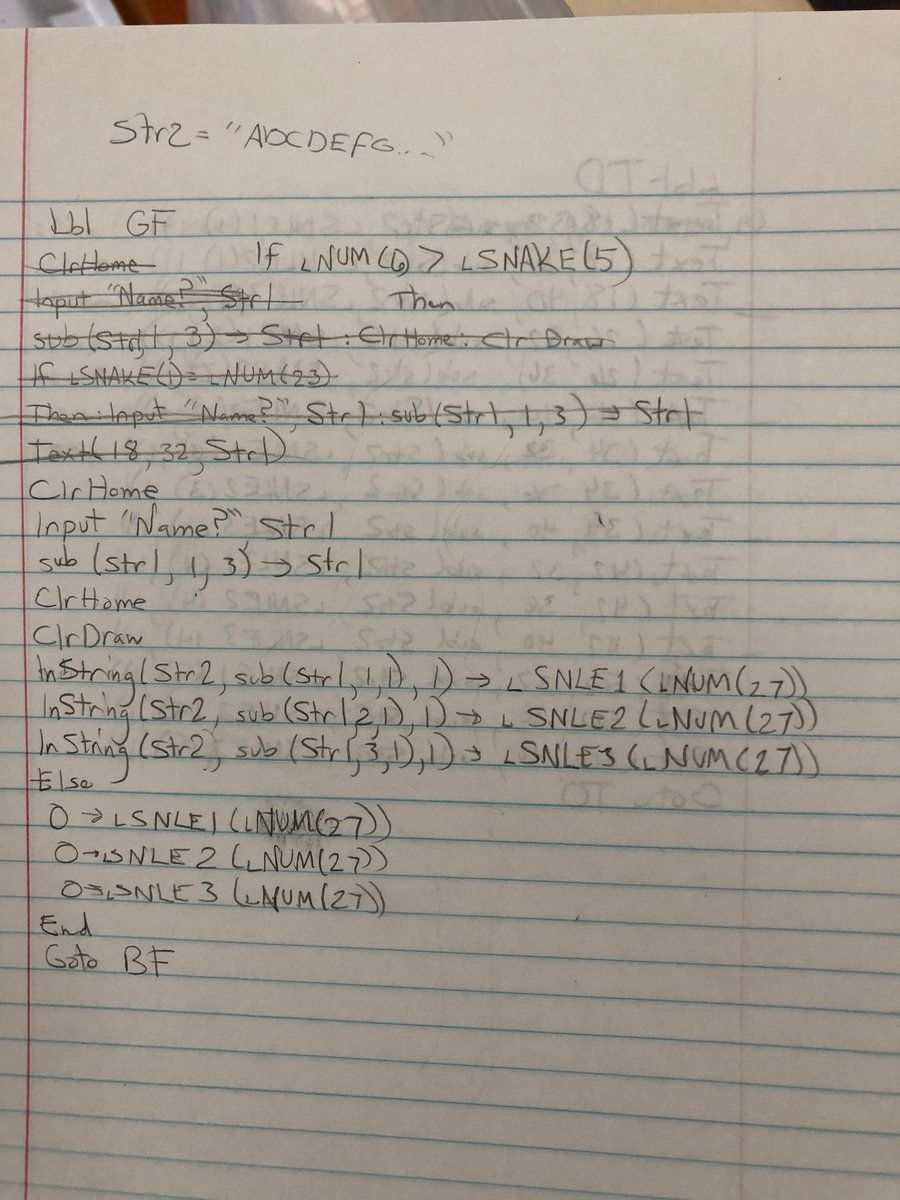 Str2 = "ABCDEFG..."
Lbl GF
ClrHome If ∟NUM(6) > ∟SNAKE(5)
Input "Name?", Str1 Then
sub(Str1, 1, 3) → Str1 : ClrHome : ClrDraw
If ∟SNAKE(1) = ∟NUM(23)
Then : Input "Name?", Str1 : sub(Str1, 1, 3) → Str1
Text(18, 32, Str1)
ClrHome
Input "Name?", Str1
sub (Str1, 1, 3) → Str1
ClrHome
ClrDraw
InString(Str2, sub(Str1, 1, 1), 1) → ∟SNLE1 (∟NUM(27))
InString(Str2, sub(Str1, 2, 1), 1) → ∟SNLE2 (∟NUM(27))
InString(Str2, sub(Str1, 3, 1), 1) → ∟SNLE3 (∟NUM(27))
Else
0 → ∟SNLE1 (∟NUM(27))
0 → ∟SNLE2 (∟NUM(27))
0 → ∟SNLE3 (∟NUM(27))
End
Goto BF